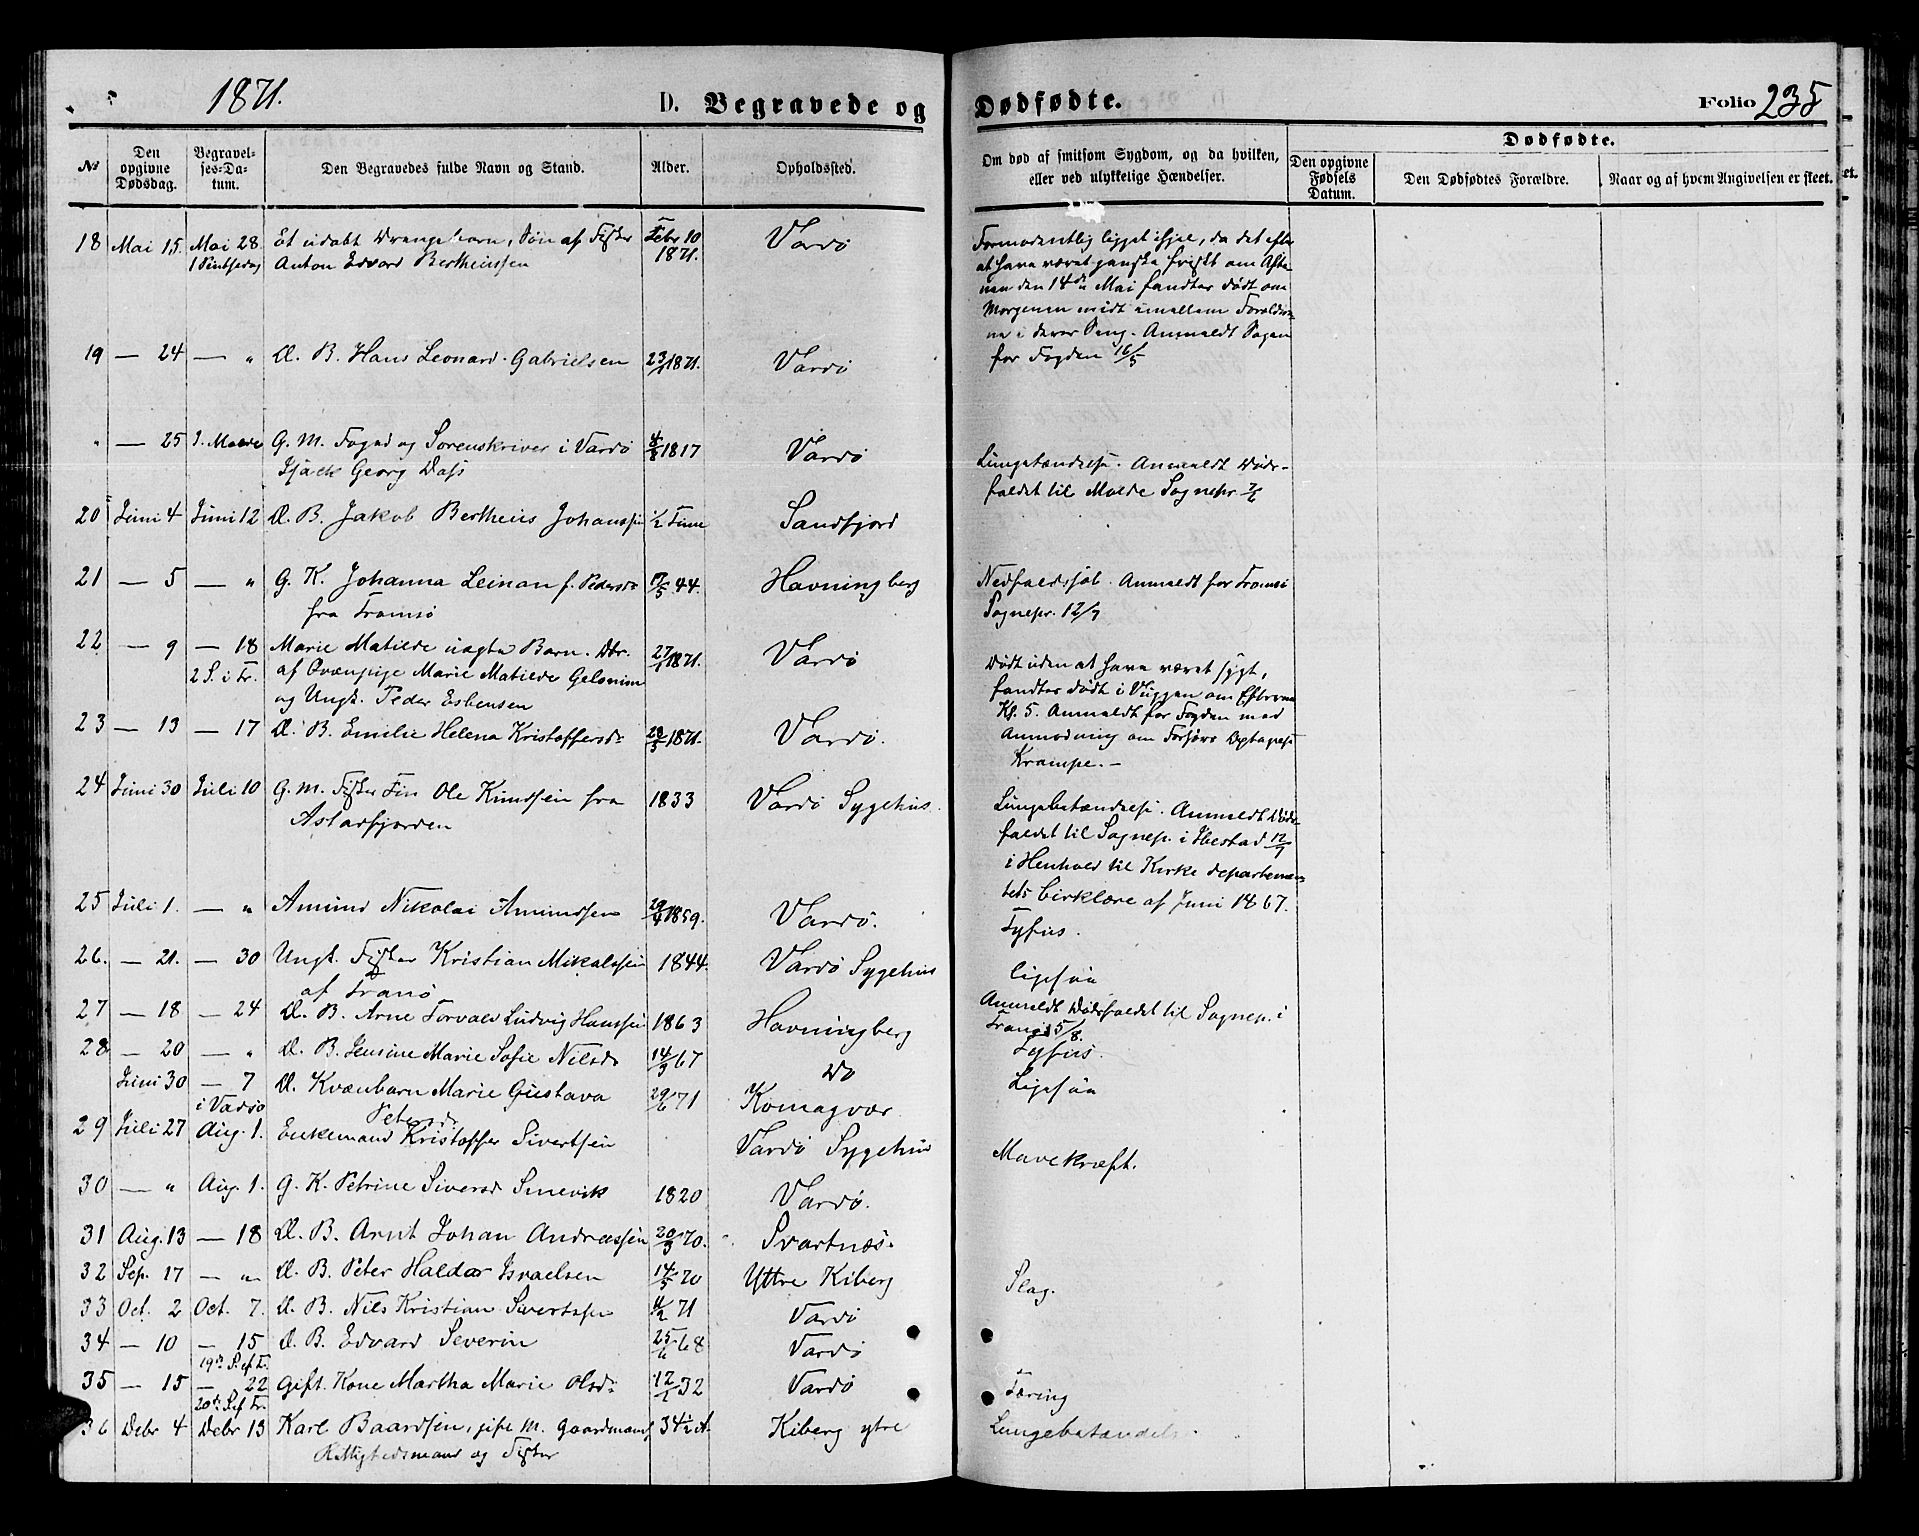 1871.
D. Begravede og
Dødfødte.
Folio 235
No
Den opgivne Dødsdag.
Begravel-ses-Da-tum.
Den Begravedes fulde Navn og Stand.
Alder.
Opholdssted.
Om død af smitsom Sygdom, og da hvilken, eller ved ulykkelige Hændelser.
Dødfødte.
Den opgivne Fødsels Datum.
Den Dødfødtes Forældre.
Naar og af hvem Angivelsen er skeet.
et.
18 Mai 15 Mai 28 Et udøbt Drengebarn, Søn af Fisker Febr 10 Vardø
Anton Edvard Bertheussen 1871.
Formodentlig ligget ihjel, da det efter
at have været ganske friskt om Afte-
nen den 14de Mai fandtes dødt om
Morgenen midt imellem Forældre-
ne i deres Seng. Anmeldt Sagen
for Fogden 16/5
19 — 24 — " D. B. Hans Leonard Gabrielsen 1871. Vardø
" — 25 G. M. Foged og Sorenskriver i Vardø 1817 Vardø
Isack Georg Dass
Lungebetændelse. Anmeldt Døds-
faldet til Molde Sognepr.
20 Juni 4 Juni 12 D. B. Jakob Bertheus Johanssen 1/2 Time Sandfjord
21 — 5 — " G. K. Johanna Leinan f. Pedersd 44. Havningberg
fra Tromsø
Nedfaldssot. Anmeldt for Tromsø
Sognepr. 12/7
22 — 9 — 18 Marie Matilde uægte Barn. Dtr. 1871. Vardø
2 S. i Tr. af Kvænpige Marie Matilde
og Ungk. Peder Esbensen
Dødt uden at have været sygt,
fandtes dødt i Vuggen om Efterm
Kl. 5. Anmeldt for Fogden med
Anmodning om Forhørs Optagelse
23 — 13 — 17 D. B. Emilie Helena Kristoffersd. 1871. Vardø.
Krampe. —
24 Juni 30 Juli 10 G. M. Fisker Fin Ole Knudsen fra 1833 Vardø Sygehus.
Astafjorden
Lungebetændelse. Anmeldt Døds-
faldet til Sognep. i Ibestad 12/7
i Henhold til Kirkedepartemen-
tets Cirkulære af Juni 1867.
25 Juli 1. — " Amund Nikolai Amundsen 1859. Vardø.
Tyfus.
26. — 21. — 30 Ungk. Fisker Kristian Mikalssen 1844. Vardø Sygehus
af Tranø
ligesaa
Anmeldt Dødsfaldet til Sognep. i
Tranø 5/8.
27 — 18 — 24 D. B. Arne Torvald Ludvig Hanssen 1863 Havningberg
Tyfus.
28 — 20 — " D. B. Jensine Marie Sofie Nilsd 14/3 67 Do
Ligesaa
Juni 30 — 7 D. Kvænbarn Marie Gustava 71 Komagvær
i Vadsø Petersd.
29 Juli 27 Aug. 1. Enkemand Kristoffer Sivertsen Vardø Sygehus
Mavekræft.
30 — " Aug. 1. G. K. Petrine Siversd Smevik 1820 Vardø.
31 Aug. 13 — 18 D. B. Arnt Johan Andreassen 20/3 70. Svartnæs.
32 Sep. 17 — " D. B. Peter Haldor Israelsen 14/5 70 Yttre Kiberg
Slag.
33 Oct. 2 Oct. 7. D. B. Nils Kristian Sivertsen 71 Vardø
34 — 10 — 15 D. B. Edvard Severin 25/6 68 Vardø
19de S. ef T.
35 — 15 — 22 Gift Kone Martha Marie Olsd. 32 Vardø
20de S. ef Tr.
Tæring
36 Debr 4 Debr 13 Karl Baardsen, gift M. Gaardmand 34 1/2 A. Kiberg ytre
Rettighedsmand og Fisker
Lungebetændels.